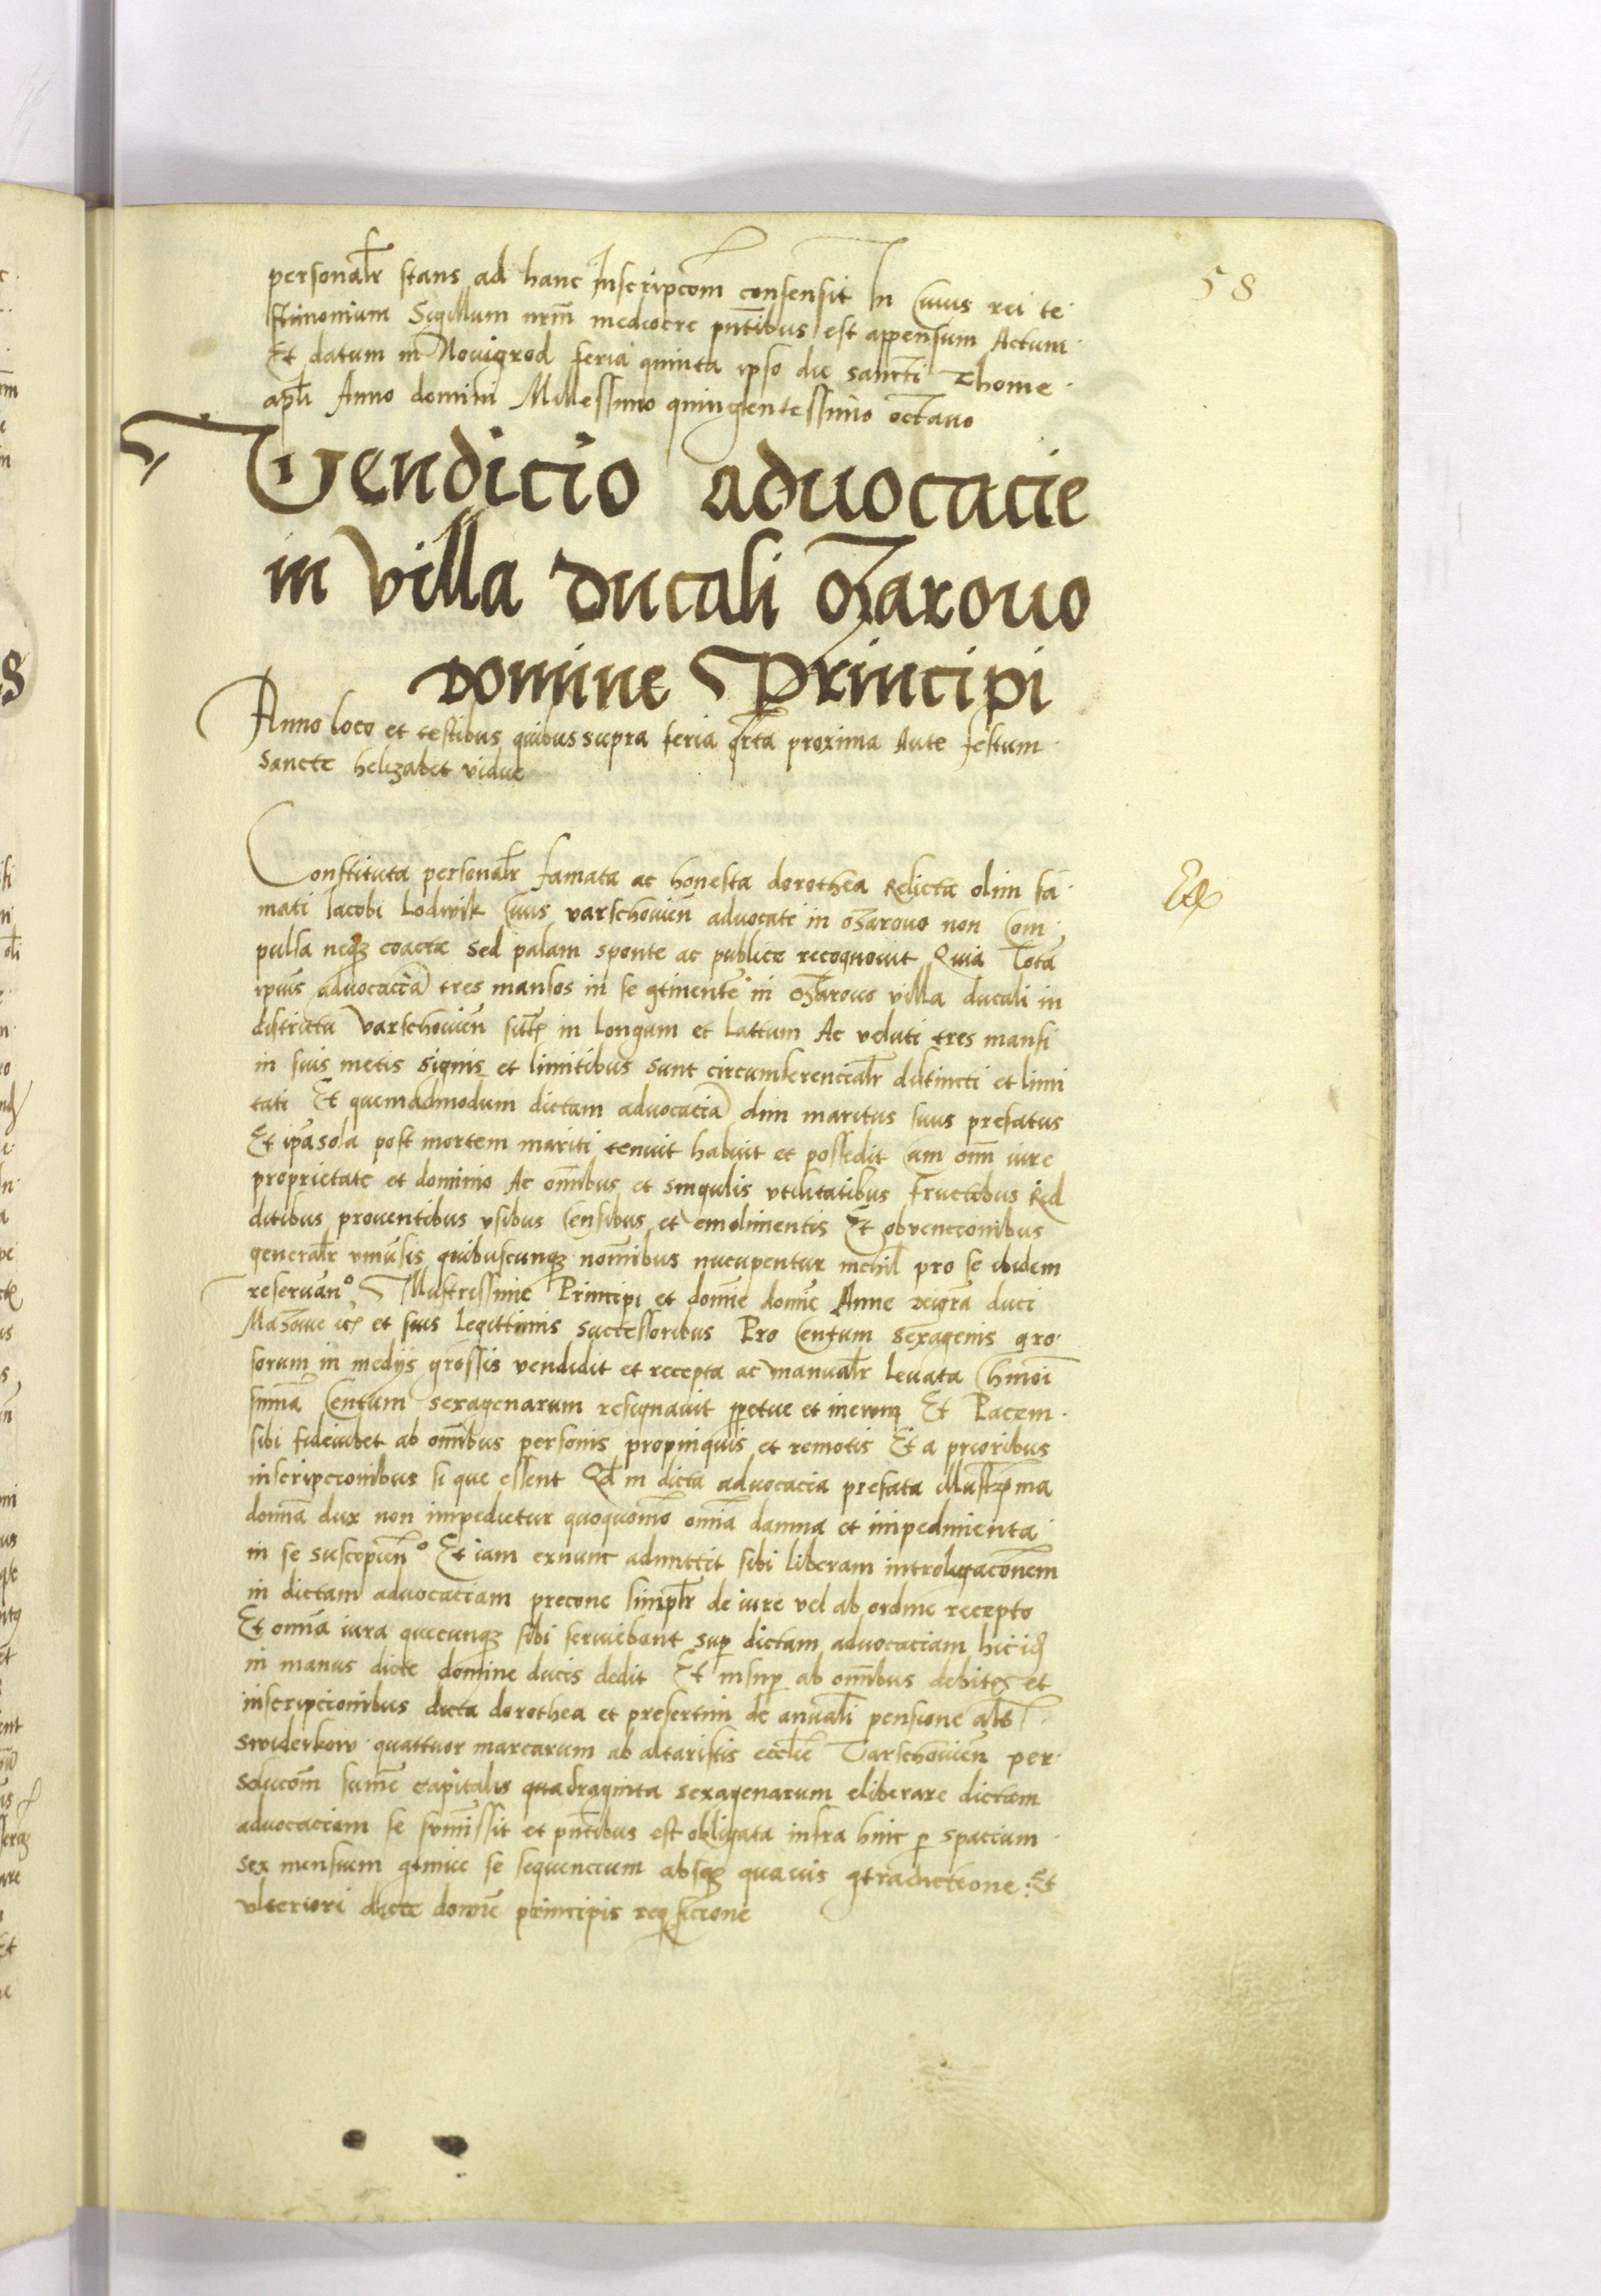 58
personalr stans ad hanc Inscripcom consensit In Cuius rei te
stimonium Sigillum nrm mediocre pntibus est appensum Actum
Et datum in Novigrod feria quinta ipso die sancti Thome
apli Anno domini Millessimo quingentessimo octavo
Vendicio advocacie
in villa ducali ozarovo
domine Principi
Anno loco et testibus quibus supra feria qrta proxima Ante festum
sancte helizabet vidue
Constituta personalr famata ac honesta dorothea Relicta olim fa
mati Iacobi Lodwik Civis varschovien advocati in ozarovo non Com
pulsa neqz coacta sed palam sponte ac publice recognovit Quia Tota
ipius advocacia tres mansos in se 9tinente in ozarovo villa ducali in
districtu varschovien sitt in longum et lattum Ac veluti tres mansi
in suis metis signis et limitibus sunt circumferencialr distincti et limi
tati Et quemadmodum dictam advocacia olim maritus suus prefatus
Et ipa sola post mortem mariti tenuit habuit et possedit Cum omi iure
proprietate et dominio Ac omibus et singulis utilitatibus fructibus Red
ditibus proventibus usibus Censibus et emolimentis Et obvencionibus
generalr quibuscunqz nomibus nucupentur nichil pro se ibidem
reservan° Illustrissime Principi et domne domne Anne deigra duci
Mazovie et suis legittimis successoribus Pro Centum sexagenis gro
sorum in medijs grossis vendidit et recepta ac manualr levata hmoi
suma Centum sexagenarum resignavit ppetue et in evum Et Pacem
sibi fideiubet ab omibus personis propinquis et remotis Et a prioribus
inscripcionibus si que essent Qd in dicta advocacia prefata Illustrma
domna dux non impedietur quoquomo omia damna et impedimenta
in se suscepien° Et iam exnunc admittit sibi liberam introligaconem
in dictam advocaciam precone simplr de iure vel ab ordine recepto
Et omia iura quecunqz sibi serviebant sup dictam advocaciam hic
in manus dicte domine ducis dedit Et insup ab omibus debitis et
inscripcionibus dicta dorothea et presertim de anuali pensione als
swiderkow quattuor marcarum ab altaristis ecclie Varschovien per
solucom sume capitalis quadraginta sexagenarum eliberare dictam
advocaciam se sumissit et pntibus est obligata infra hinc p spacium
sex mensium 9tinue se sequencium absqz quavis 9tradictione Et
ulteriori dicte domne principis reqsicione